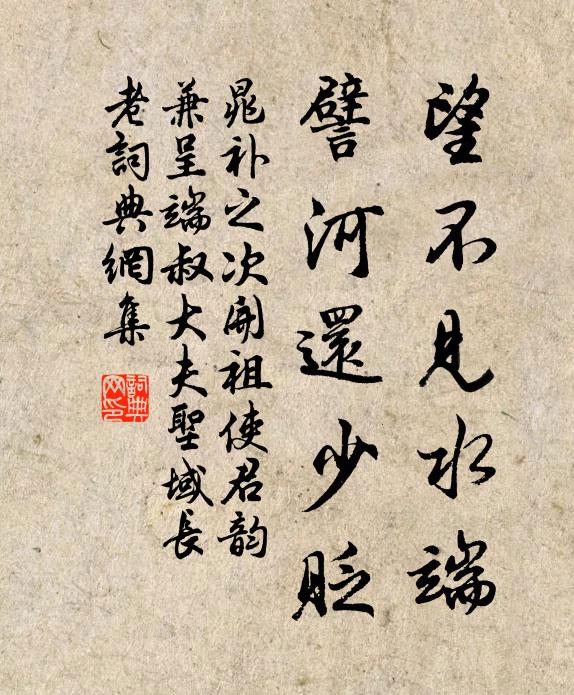 望不見水端
譬河還少貶
晁补之次開祖使君韵
兼呈端叔大夫聖域長
老詞典網集
詞典网印